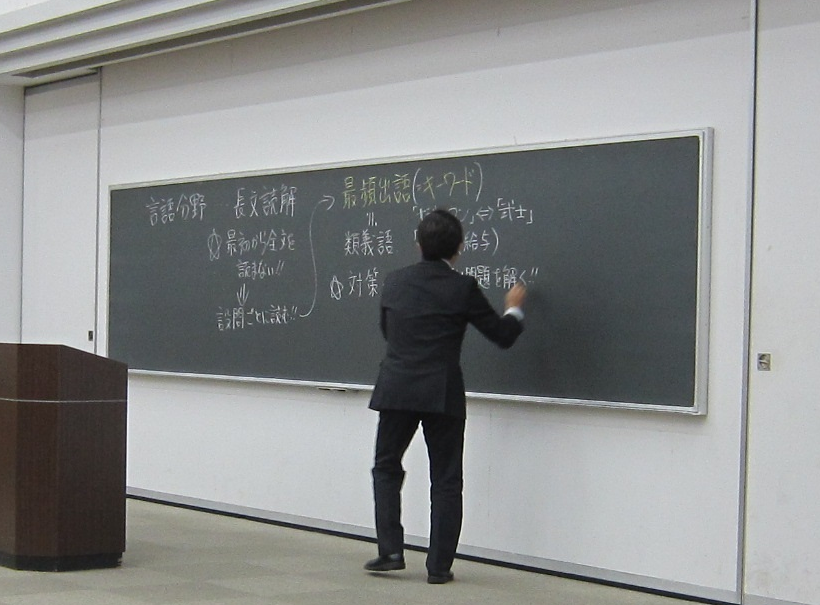 言語分野 長文読解
☆最初から全文を
読まない!!
⇓
設問ごとに読む!!
→ 最頻出語(=キーワード)
⇔「武士」
類義語 給与)
☆対策 問題を解く!!